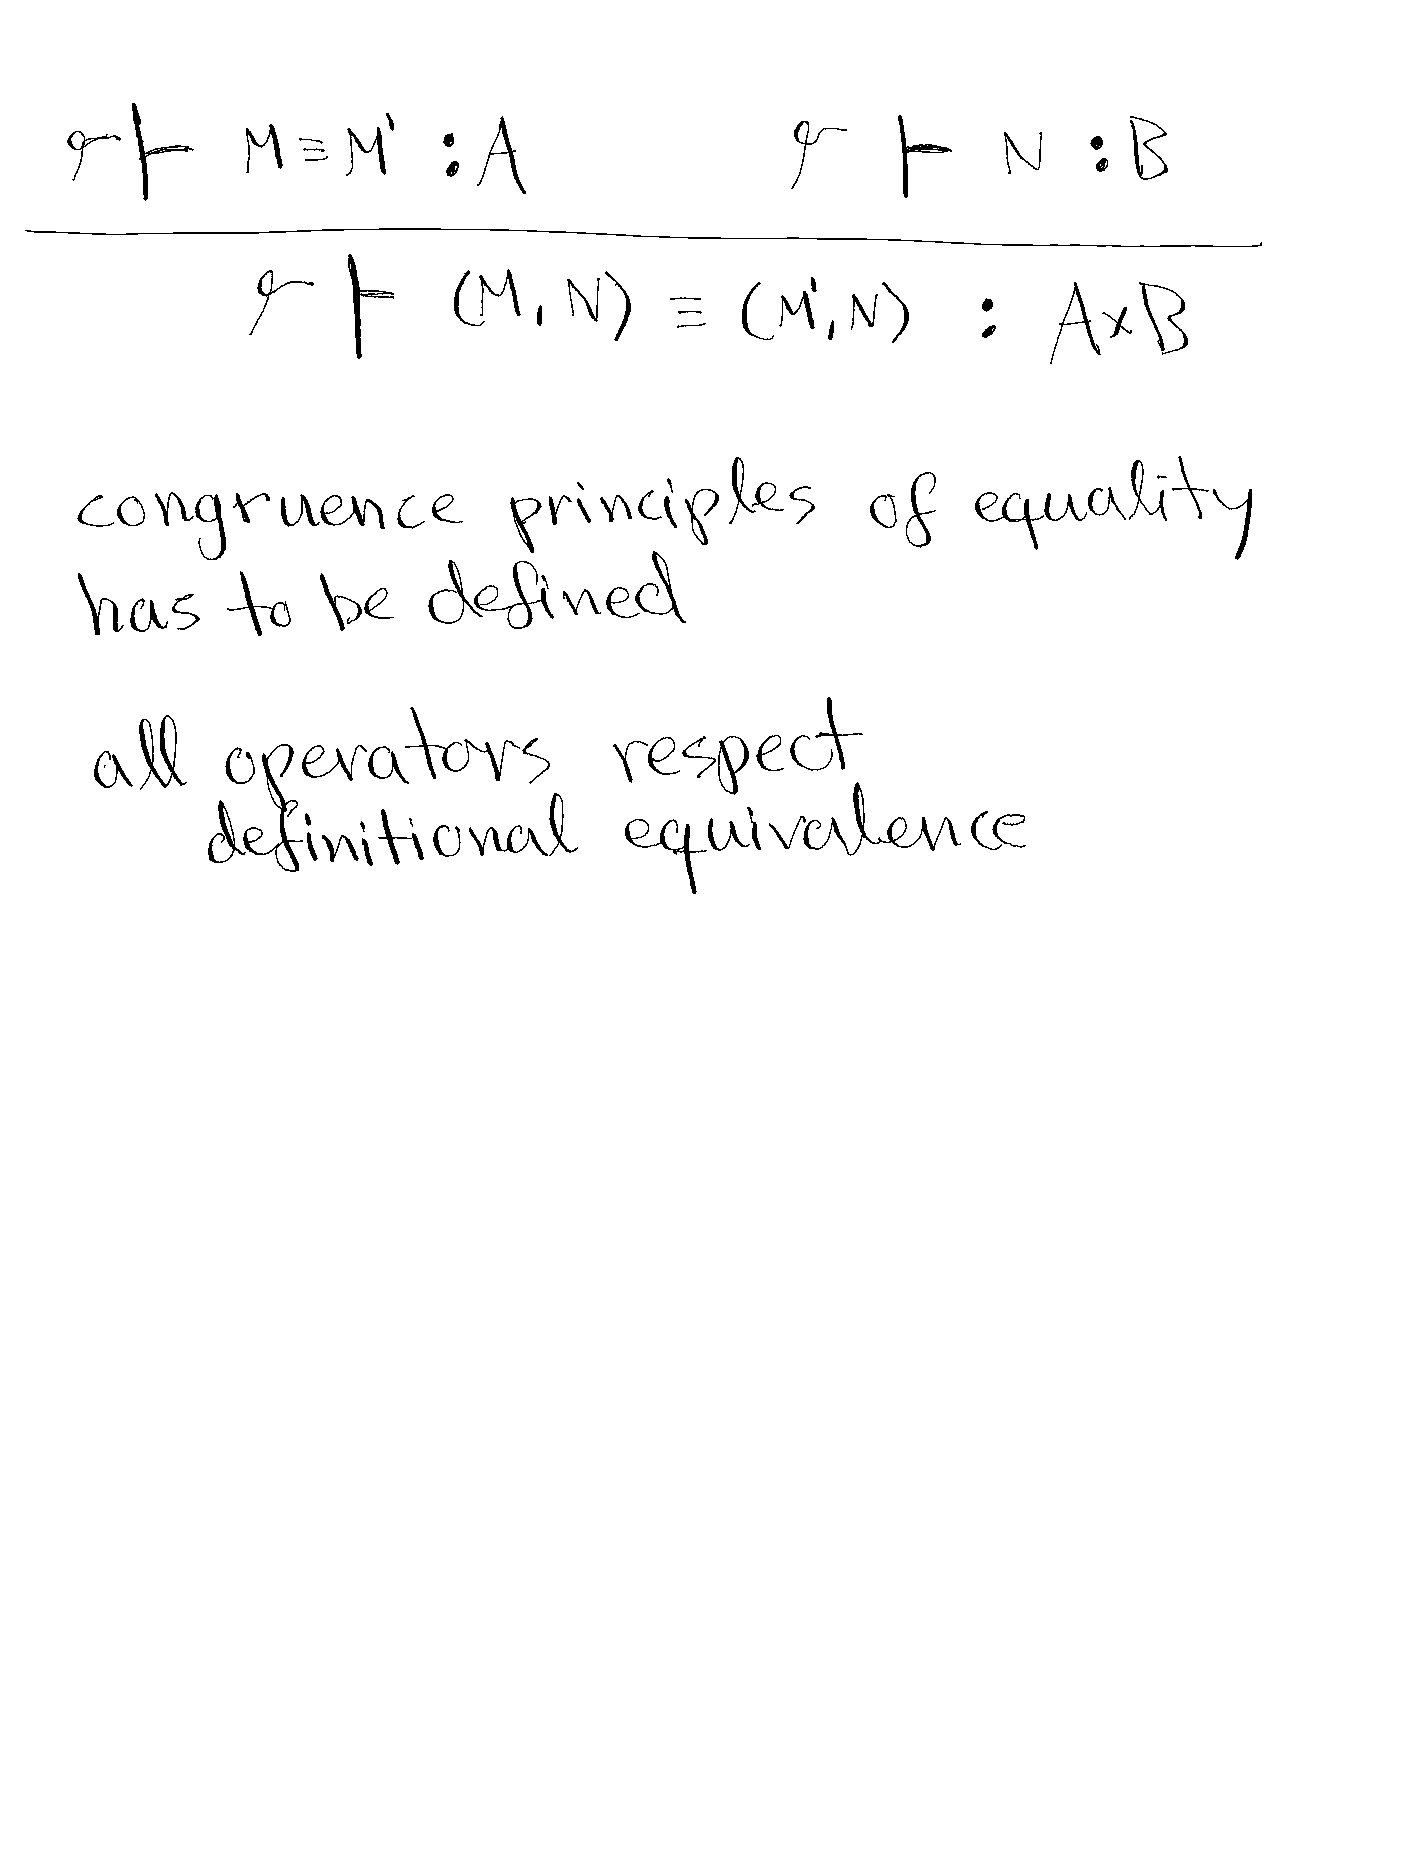 Γ ⊢ M ≡ M' : A    Γ ⊢ N : B
Γ ⊢ (M, N) ≡ (M', N) : A×B
congruence principles of equality
has to be defined
all operators respect
definitional equivalence